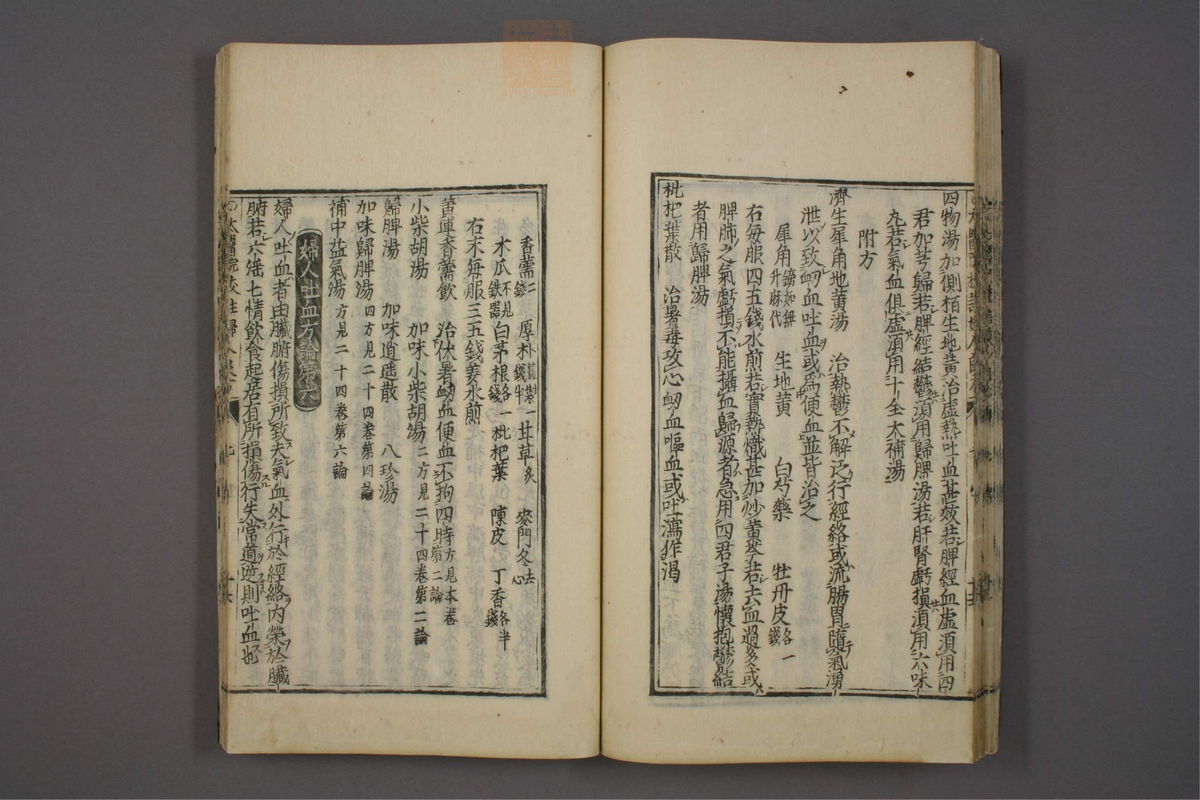 四物湯加側栢生地黃治虛熱吐血甚效若脾經血虛須用四
君加芎歸若脾經結鬱須用歸脾湯若肝腎虧損須用六味
丸若氣血俱虛須用十全大補湯
附方
濟生犀角地黃湯 治熱鬱不解泛行經絡或流腸胃隨氣湧
泄以致衂血吐血或為便血並皆治之
犀角鎊如無升麻代 生地黃 白芍藥 牡丹皮各一錢
右每服四五錢水煎若實熱熾甚加炒黃芩若去血過多或
脾肺之氣虧損不能攝血歸源者急用四君子湯懷抱鬱結
者用歸脾湯
枇杷葉散 治暑毒攻心衂血嘔血或吐瀉作渴
香薷二錢 厚朴薑製一錢半 甘草炙 麥門冬去心
木瓜不見鐵器 白茅根各一錢 枇杷葉 陳皮 丁香各半錢
右末每服三五錢姜水煎
黃連香薷飲 治伏暑衂血便血不拘四時方見本卷第二論
小柴胡湯 加味小柴胡湯二方見二十四卷第二論
歸脾湯 加味逍遙散 八珍湯
加味歸脾湯四方見二十四卷第四論
補中益氣湯方見二十四卷第六論
婦人吐血方論第六
婦人吐血者由臟腑傷損所致夫氣血外行於經絡內榮於臟
腑若六婬七情飲食起居有所損傷行失常道逆則吐血也
太醫院校註婦人